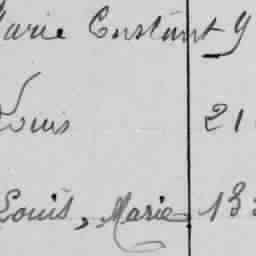 Marie Constant
Louis 21
Louis, Marie 13